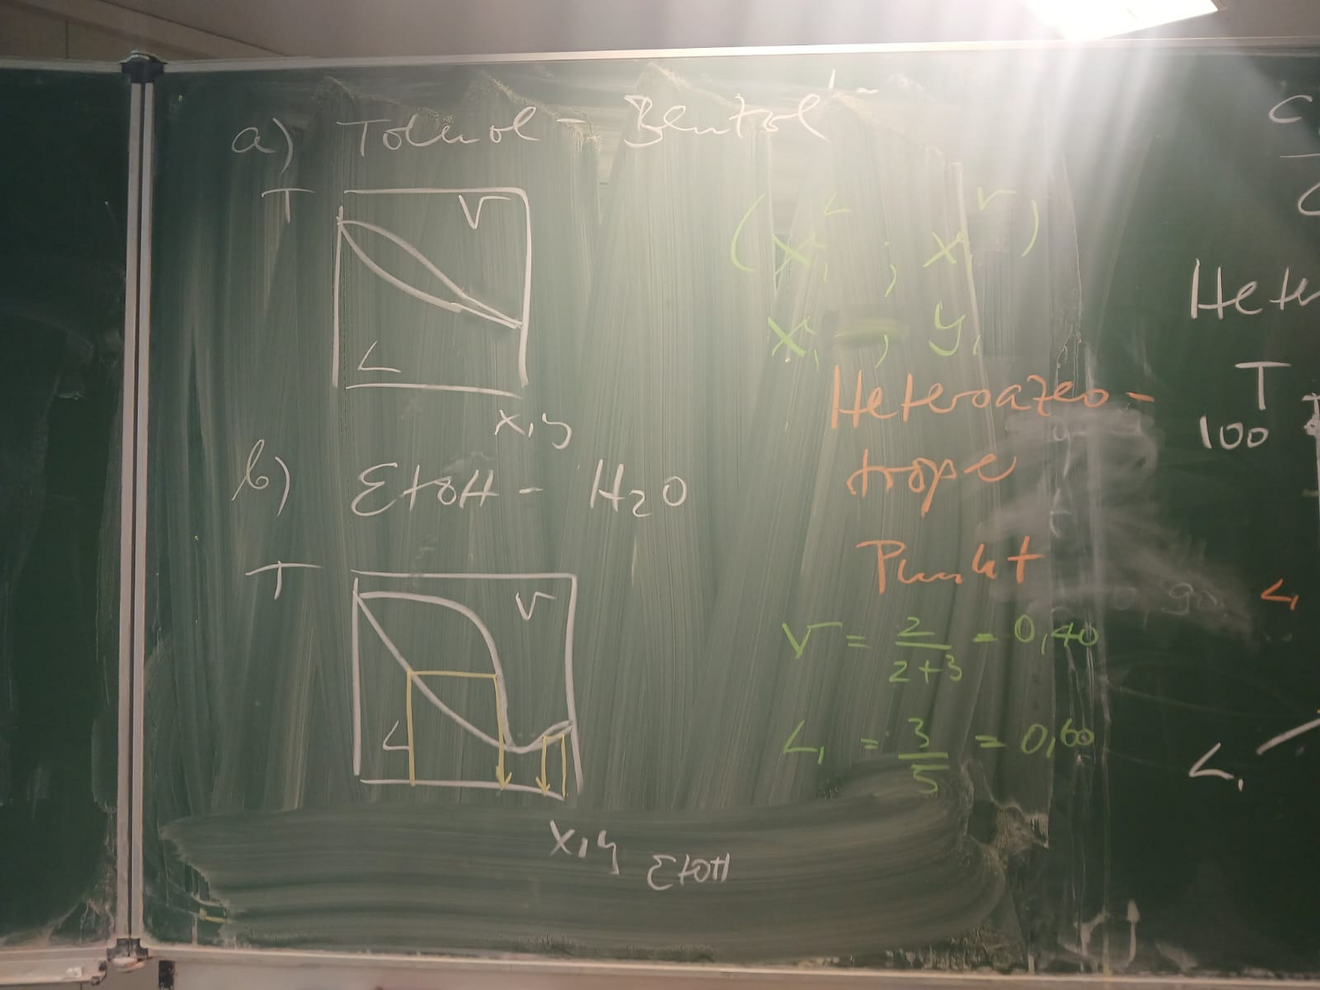 a) Toluol - Benzol
T
V
L
x, y
b) EtOH - H2O
T
V
L
x, y EtOH
(x₁ᴸ ; x₁ⱽ)
x₁ ; y₁
Heteroazeo-
trope
Punkt
V = 2/(2+3) = 0,40
L₁ = 3/5 = 0,60
C
Heter
T
100
L₁
L₁